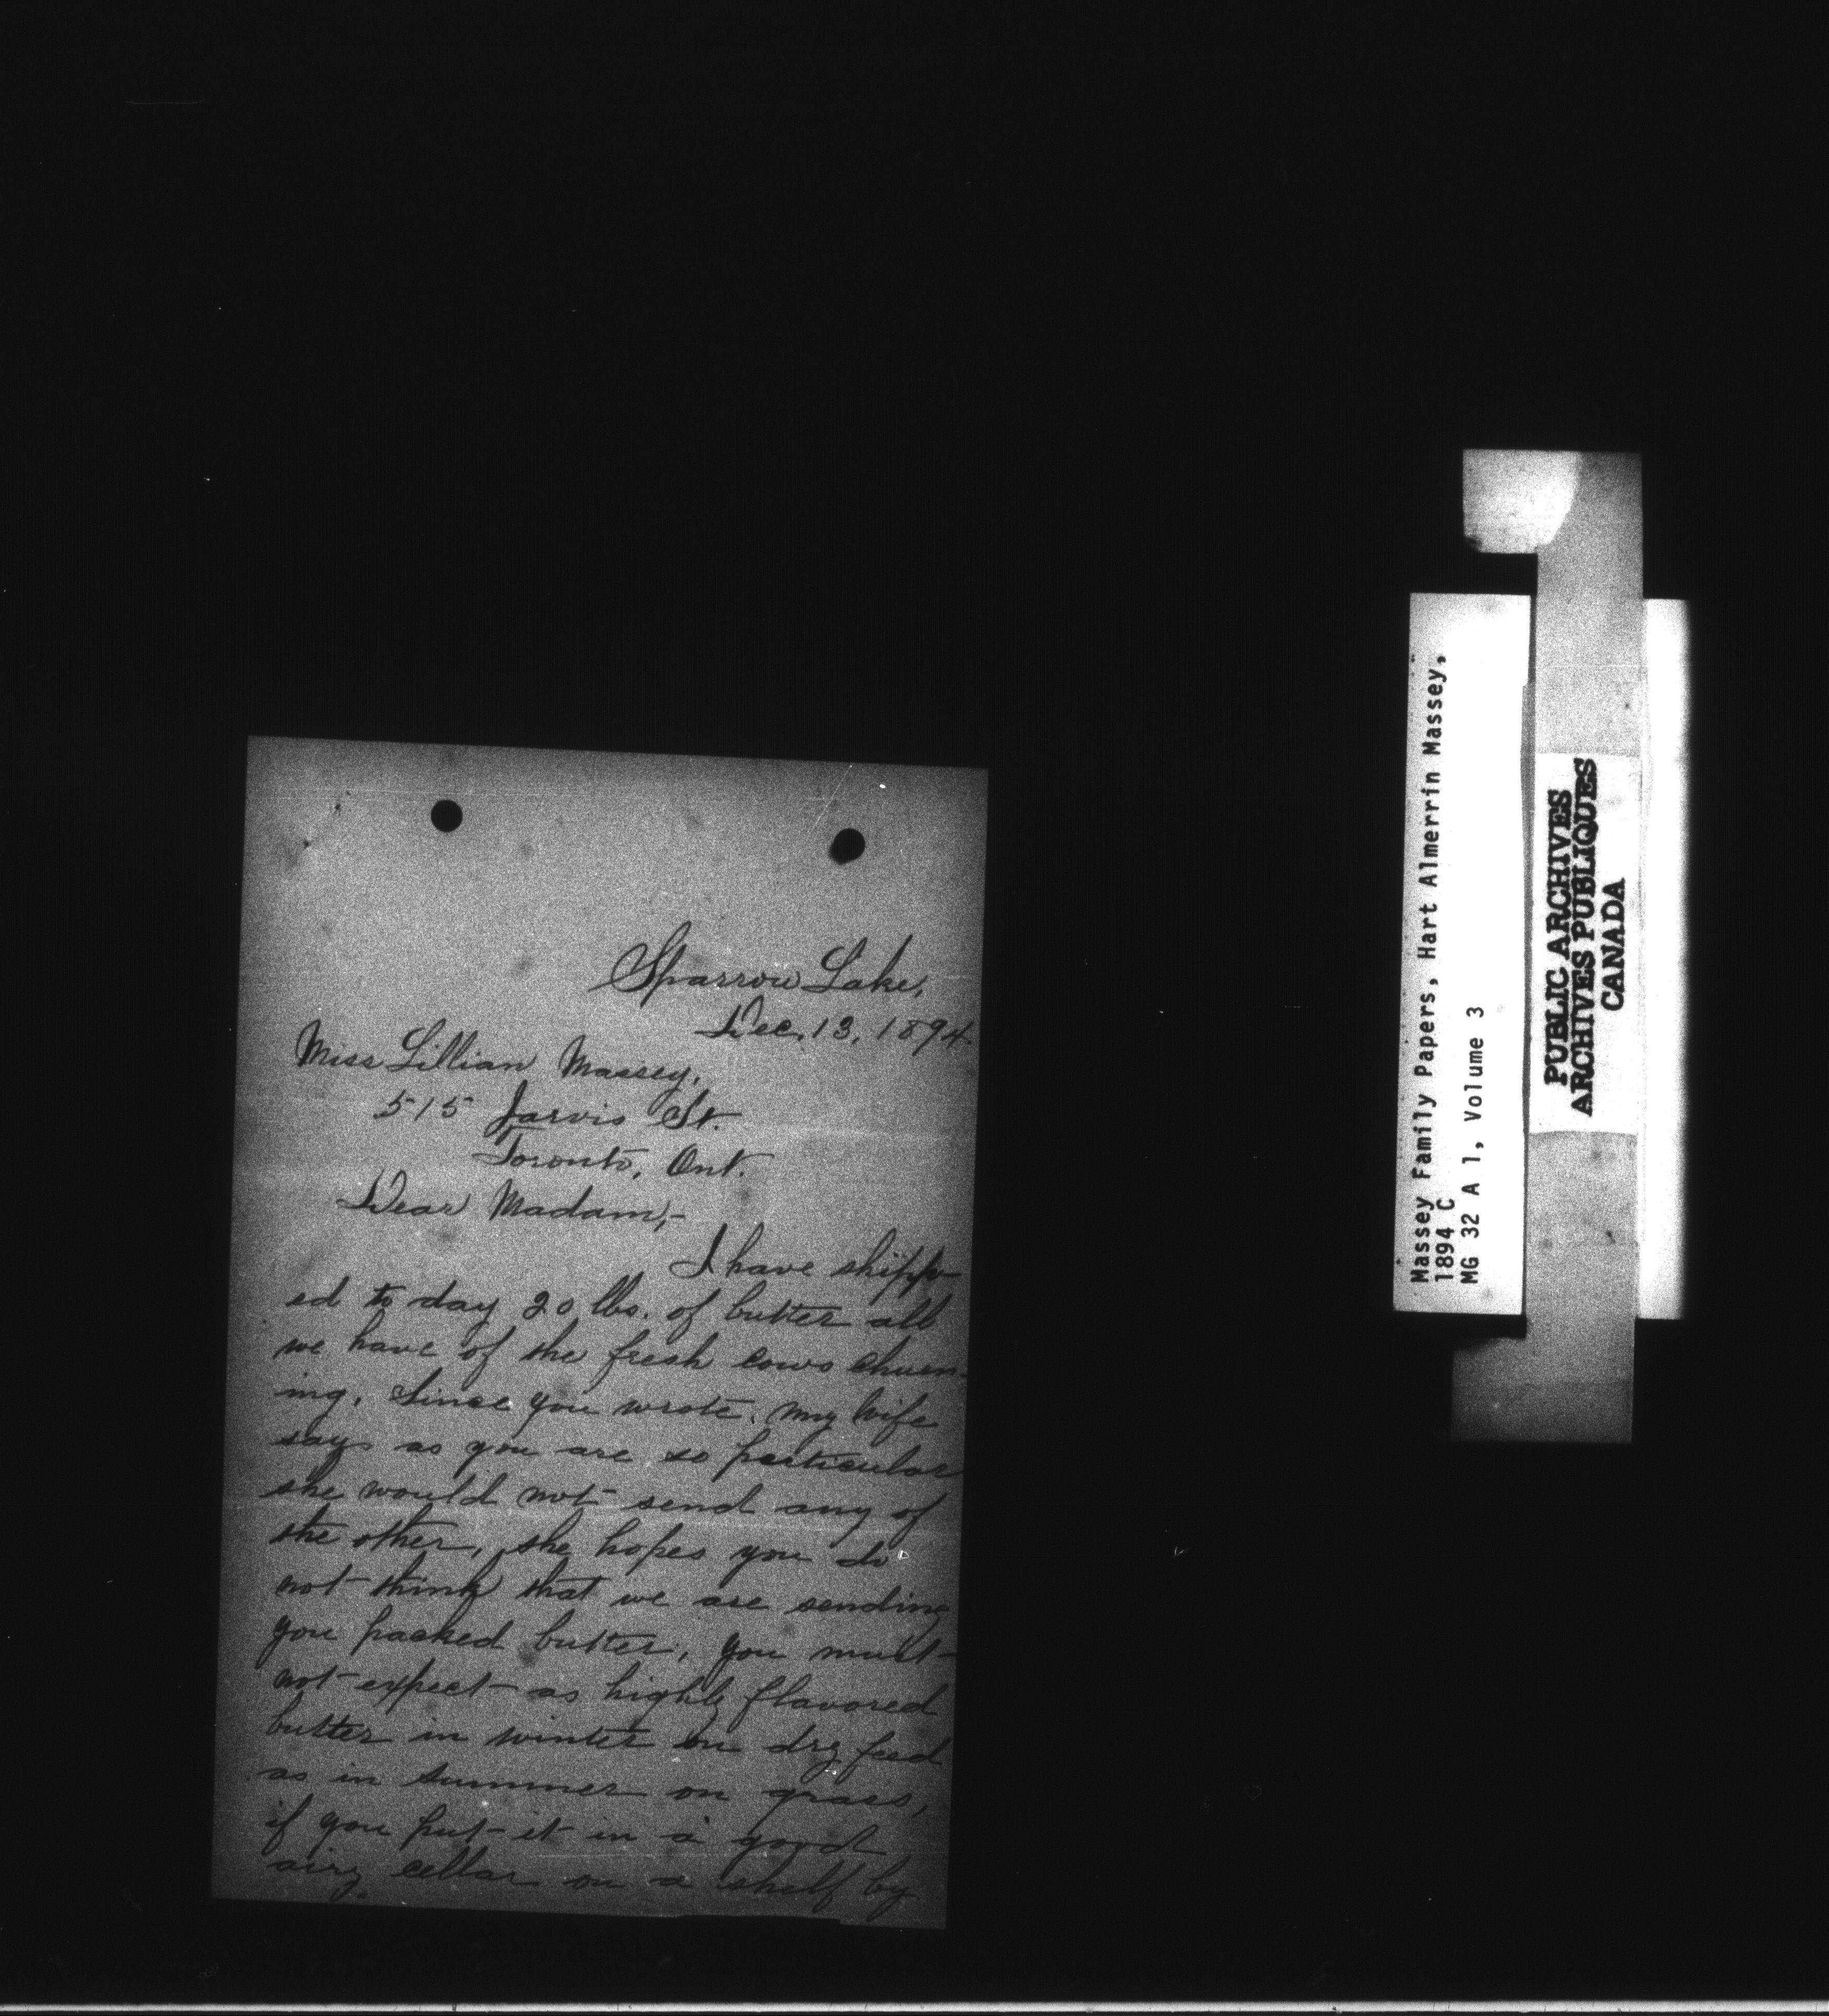 Sparrow Lake,
Dec. 13, 1894.
Miss Lillian Massey,
515 Jarvis St.
Toronto, Ont.
Dear Madam,-
I have shipp-
ed to day 20 lbs. of butter all
we have of the fresh cows churn-
ing. Since you wrote. my wife
says as you are so particular
she would not send any of
the other, she hopes you do
not think that we are sending
you packed butter, you must
not expect as highly flavored
butter in winter on dry feed
as in summer on grass,
if you put it in a good
airy cellar on a shelf by
Massey Family Papers, Hart Almerrin Massey,
1894 C
MG 32 A 1, Volume 3
PUBLIC ARCHIVES
ARCHIVES PUBLIQUES
CANADA